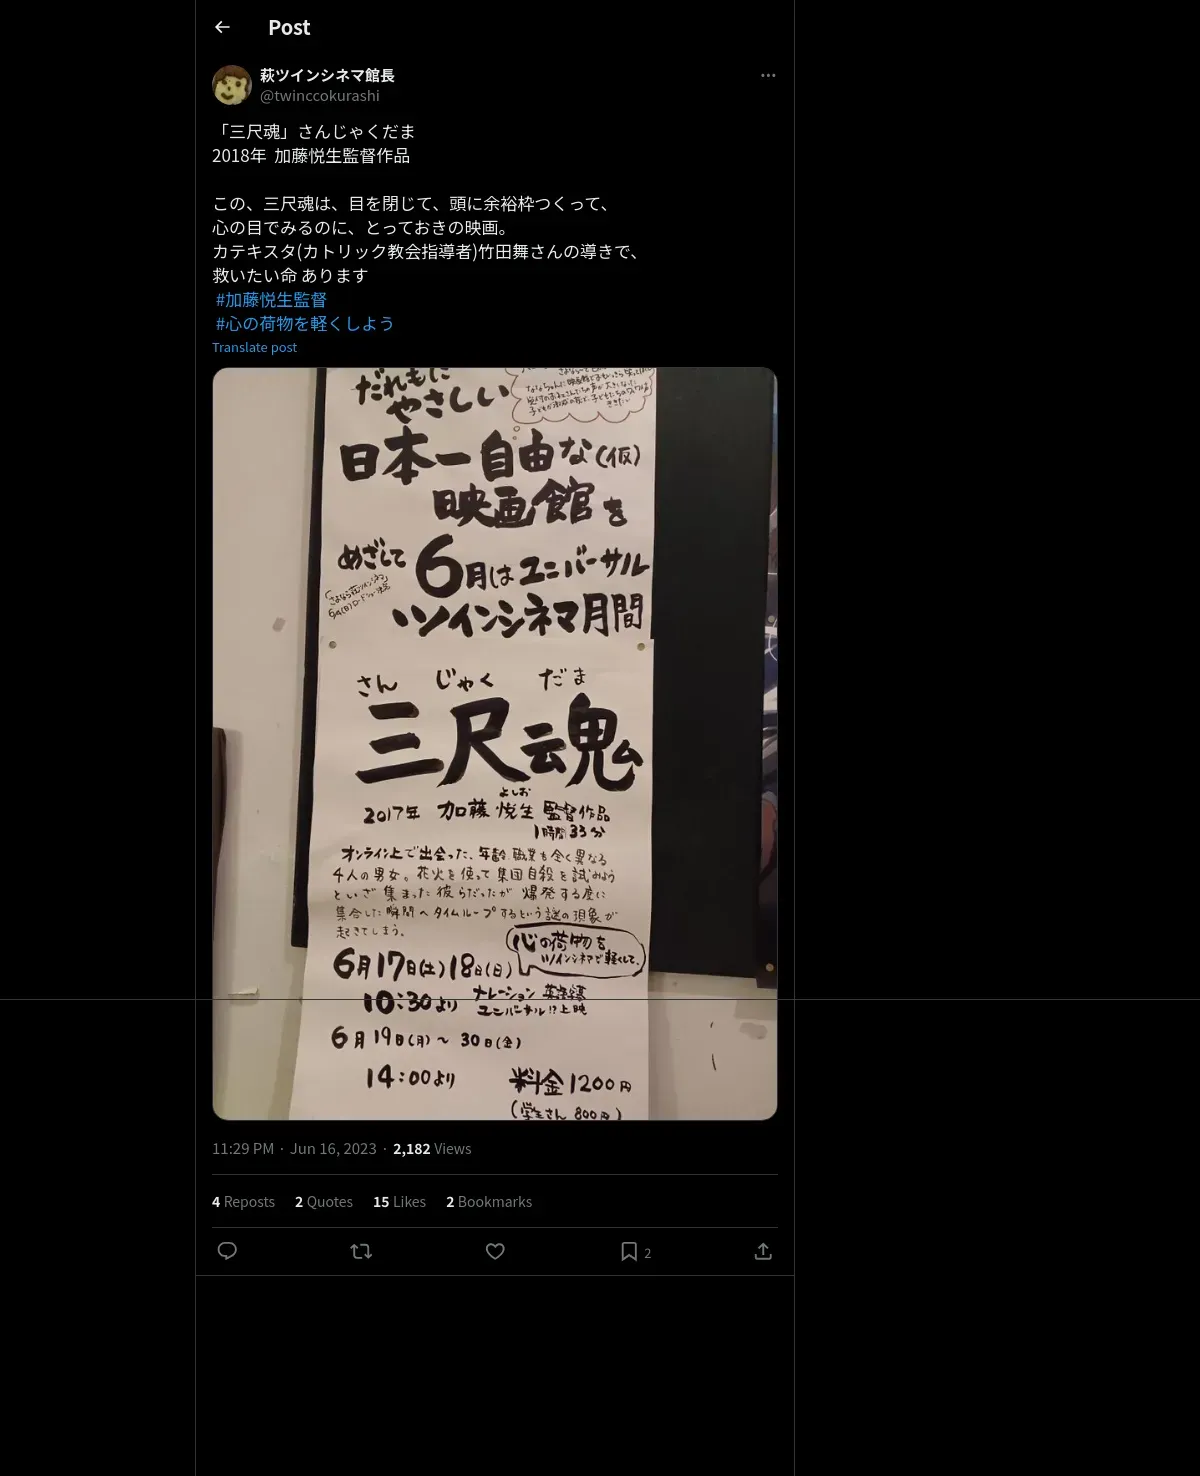 Post
萩ツインシネマ館長
@twinccokurashi
「三尺魂」さんじゃくだま
2018年 加藤悦生監督作品
この、三尺魂は、目を閉じて、頭に余裕枠つくって、
心の目でみるのに、とっておきの映画。
カテキスタ(カトリック教会指導者)竹田舞さんの導きで、
救いたい命 あります
#加藤悦生監督
#心の荷物を軽くしよう
Translate post
だれもに
やさしい
日本一自由な(仮)
映画館を
めざして 6月はユニバーサル
ツインシネマ月間
さん じゃく だま
三尺魂
よしお
2017年 加藤 悦生 監督作品
1時間33分
オンライン上で出会った、年齢 職業も全く異なる
4人の男女。花火を使って集団自殺を試みよう
といざ集まった彼らだったが 爆発する度に
集合した瞬間へタイムループするという謎の現象が
起きてしまう。
心の荷物を
ツインシネマで軽くして、
6月17日(土)18日(日)
10:30より ナレーション
ユニバーサル!?上映
6月19日(月)~30日(金)
14:00より 料金1200円
(学生さん 800円)
11:29 PM · Jun 16, 2023 · 2,182 Views
4 Reposts 2 Quotes 15 Likes 2 Bookmarks
2